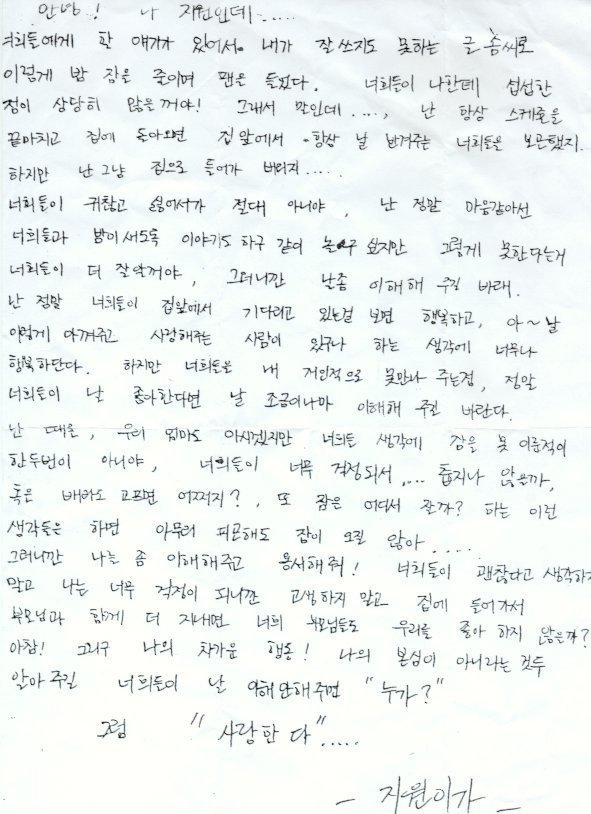 안녕! 나 지원인데......
너희들에게 할 얘기가 있어서. 내가 잘 쓰지도 못하는 글 솜씨로
이렇게 밤 잠을 줄이며 팬을 들었다. 너희들이 나한테 섭섭한
점이 상당히 많을꺼야! 그래서 말인데...., 난 항상 스케줄을
끝마치고 집에 돌아오면 집앞에서 항상 날 반겨주는 너희들을 보곤했지.
하지만 난 그냥 집으로 들어가 버리지.....
너희들이 귀찮고 싫어서가 절대 아니야, 난 정말 마음같아선
너희들과 밤이새도록 이야기도 하구 같이 놀구 싶지만 그렇게 못한다는거
너희들이 더 잘알꺼야, 그러니깐 날좀 이해해 주길 바래.
난 정말 너희들이 집앞에서 기다리고 있는걸 보면 행복하고, 아~날
이렇게 아껴주고 사랑해주는 사람이 있구나 하는 생각에 너무나
행복하단다. 하지만 너희들을 내 개인적으로 못만나 주는점, 정말
너희들이 날 좋아한다면 날 조금이나마 이해해 주길 바란다.
난 때론, 우리 엄마도 아시겠지만 너희들 생각에 잠을 못 이룬적이
한두번이 아니야, 너희들이 너무 걱정되서.... 춥지나 않은까,
혹은 배라도 고프면 어쩌지?, 또 잠은 어디서 잘까? 하는 이런
생각들은 하면 아무리 피곤해도 잠이 오질 않아.....
그러니깐 나를 좀 이해해주고 용서해줘! 너희들이 괜찮다고 생각하지
말고 나는 너무 걱정이 되니깐 고생하지 말고 집에 들어가서
부모님과 함께 더 지내면 너희 부모님들도 우리를 좋아 하지 않은까?
아참! 그리구 나의 차가운 행동! 나의 본심이 아니라는 것두
알아 주길 너희들이 날 이해안해주면 "누가?"
그럼 "사랑한다".....
- 지원이가 -